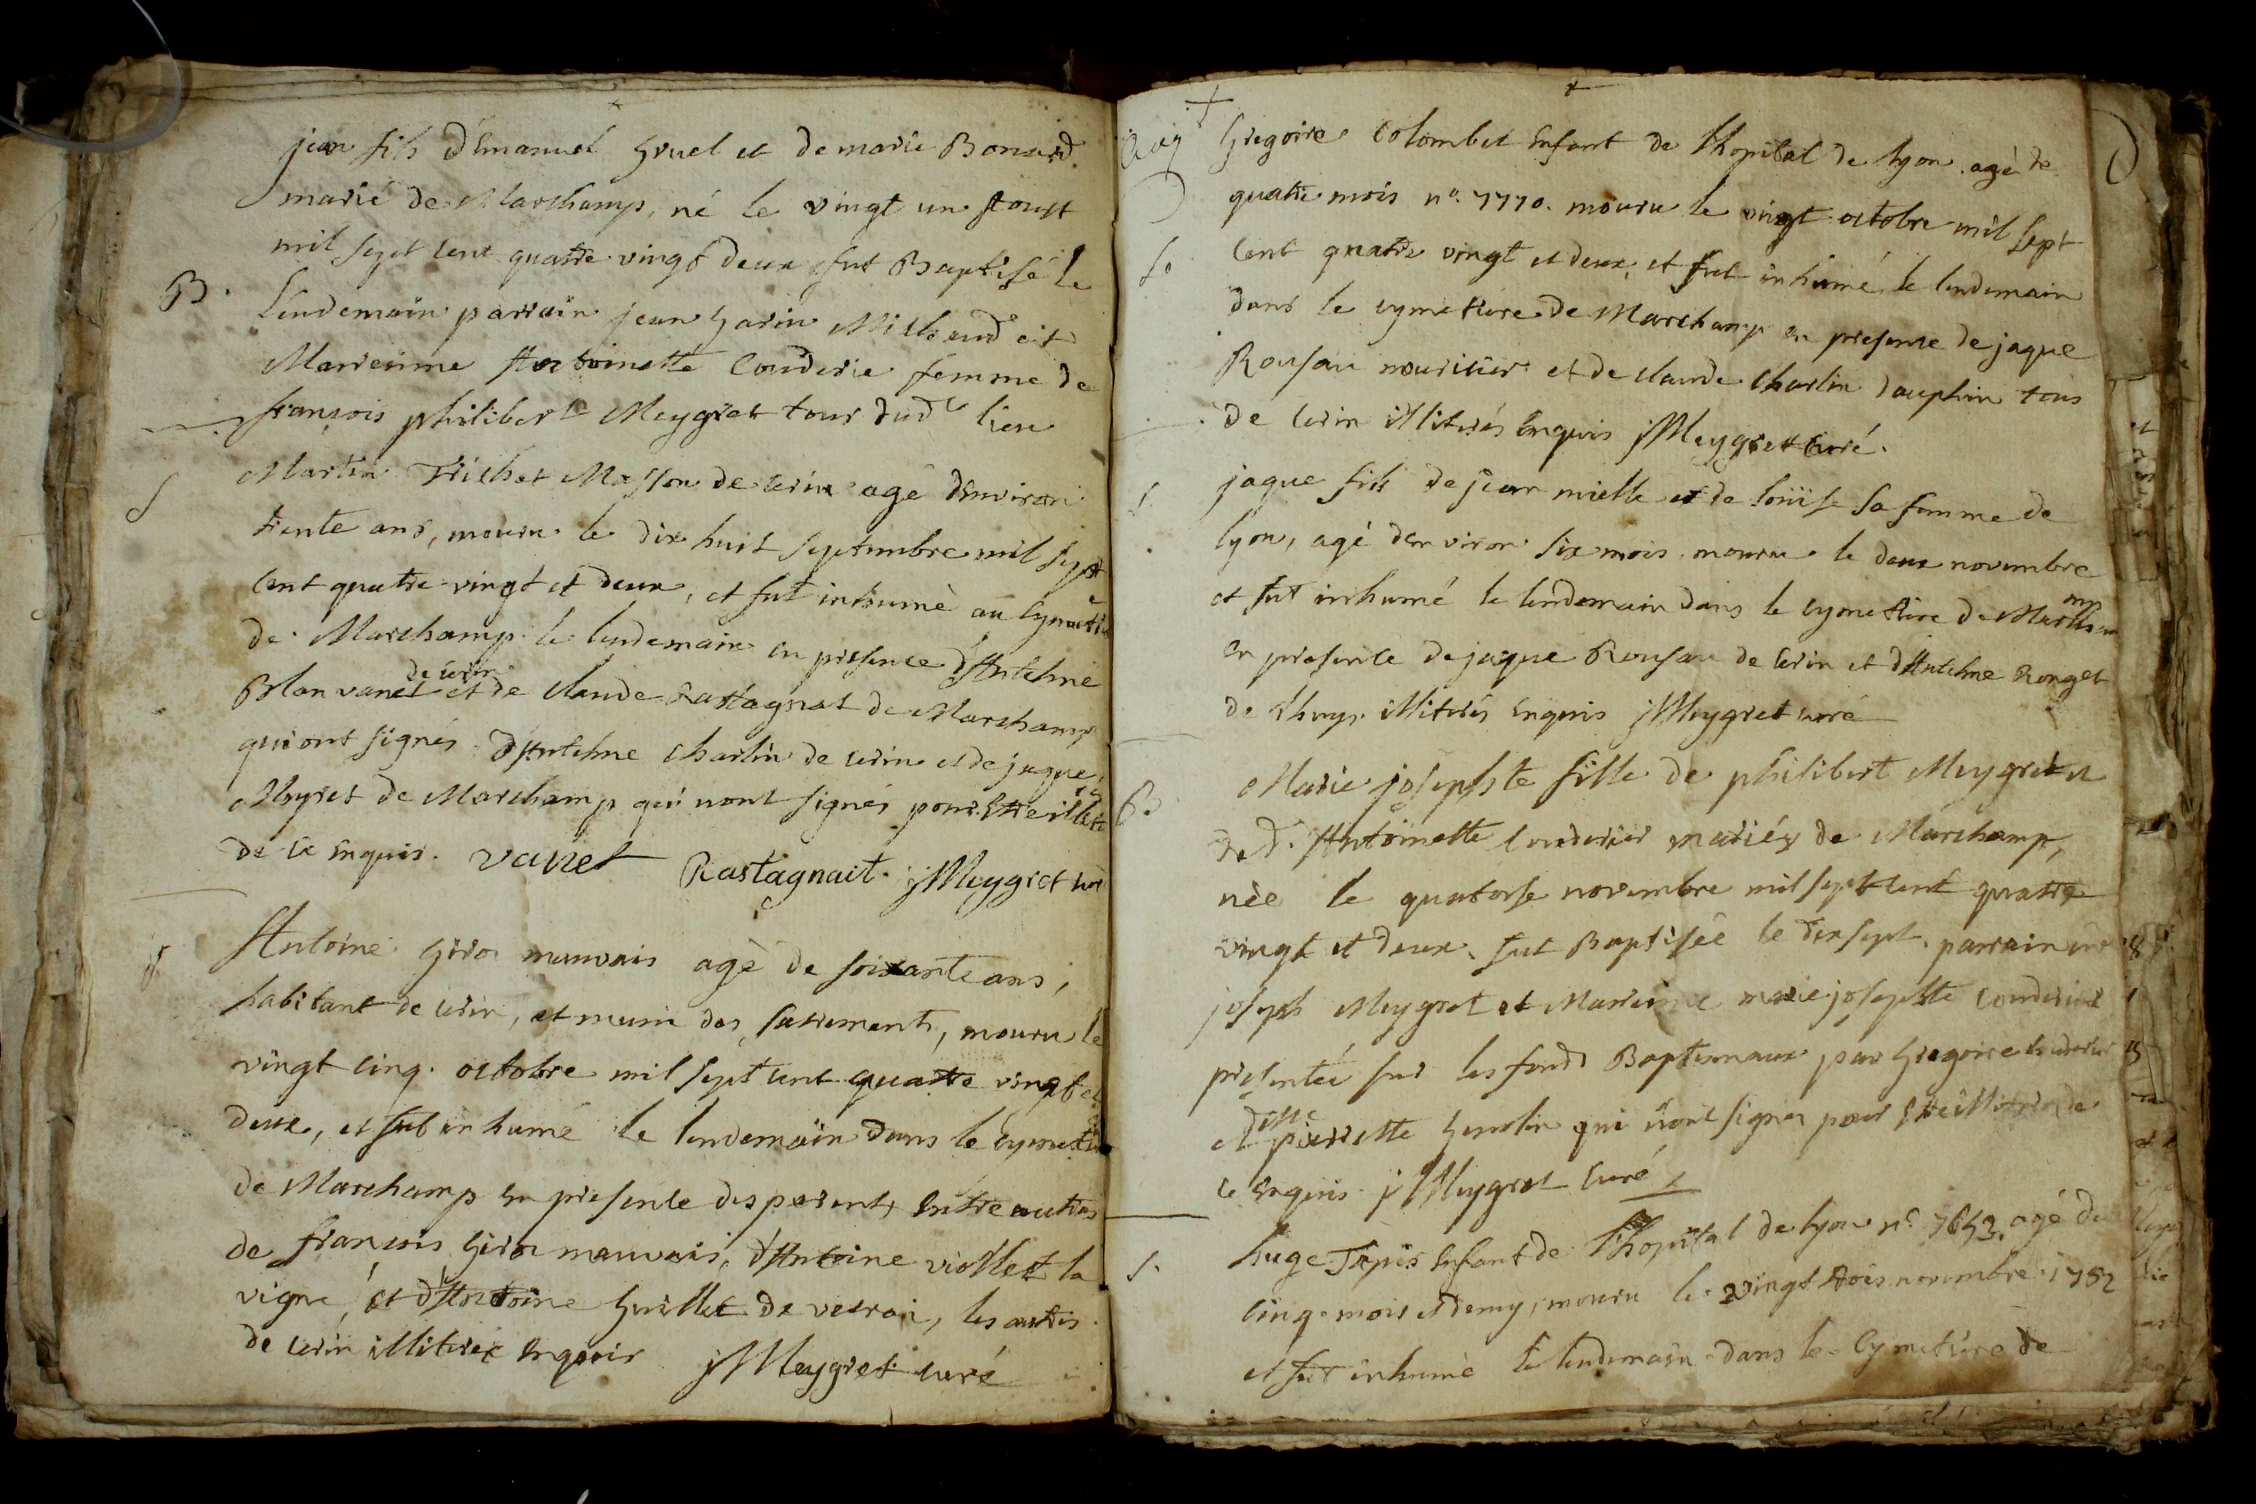 jean fils d'Emanuel Gruel et de marie Bonard
marié de Marchamp, né le vingt un Aoust
mil sept cent quatre vingt deux fut Baptisé le
B.
Lendemain parrain jean Garin Michaud et
Marreinne Antoinette Couderie femme de
françois philibert Meygret tous dud lieu
S
Martin Trichet Masson de cerin agé d'Environ
trente ans, mouru le dix huit septembre mil sept
cent quatre vingt et deux, et fut inhumè au Cymetie
de Marchamp le lendemain en presence d'Antelme
de cerin
Blon vanet et de claude Rastagnat de Marchamp
qui ont signés d'Antelme charlin de cerin et de jaque
Meyret de Marchamp qui nont signés pour Etre illite
de ce Enquis. vanet Rastagnait. jMeygret curé
S
Antoine Giro mauvais agé de soixante ans,
habitant de cerin, et muni des sacrements, mouru le
vingt cinq octobre mil sept cent quatre vingt et
deux, et fut inhumé le lendemain dans le cymetie
de Marchamp En presence des parents Entre autres
de françois Giro mauvais, d'Antoine viollet la
vigne, et d'Antoine Guillet de vetrai, les autres
de cerin illiterés Enquis jMeygret curé
Gregoire Colombet Enfant de l'hopital de lyon agé de
quatre mois n°. 7770. mouru le vingt octobre mil sept
S.
cent quatre vingt et deux, et fut inhumé le lendemain
dans le cymetiere de Marchamp en presence de jaque
Rousau nouricier et de claude charlin dauphin tous
de cerin illiterés Enquis jMeygret curé.
S.
jaque fils de jean mielle et de Loüise sa femme de
lyon, agé d'environ six mois mouru le deux novembre
et fut inhumé le lendemain dans le cymetiere de Marcham
mp
En presence de jaque Rousau de cerin et d'Antelme Ronget
de Lhuys illiterés Enquis jMeygret curé
B.
Marie josephte fille de philibert Meygret et
de d. Antoinette Couderier mariés de Marchamp,
née le quatorse novembre mil sept cent quatre
vingt et deux, fut Baptisée le dix sept. parrain
joseph Meygret et Marreinne marie josephte Couderier
presentée sur les fonds Baptismaux par Gregoire Couderier
et dlle pierrette Genolin qui n'ont signes pour Etre illiterés de
ce Enquis jMeygret curé
S.
huge Tapis Enfant de l'hopital de lyon n°. 7653. agé de
cinq mois et demy, mouru le vingt trois novembre 1782
et fut inhumè le lendemain dans le Cymetiere de